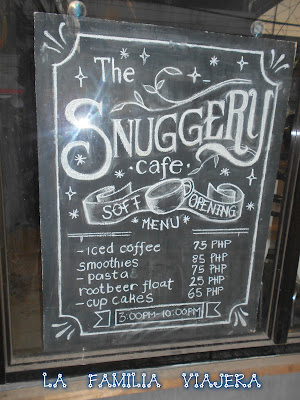 The
SNUGGERY
cafe
SOFT OPENING
MENU
- iced coffee 75 PHP
smoothies 85 PHP
- pasta 75 PHP
rootbeer float 25 PHP
- cup cakes 65 PHP
3:00PM-10:00PM
LA FAMILIA VIAJERA